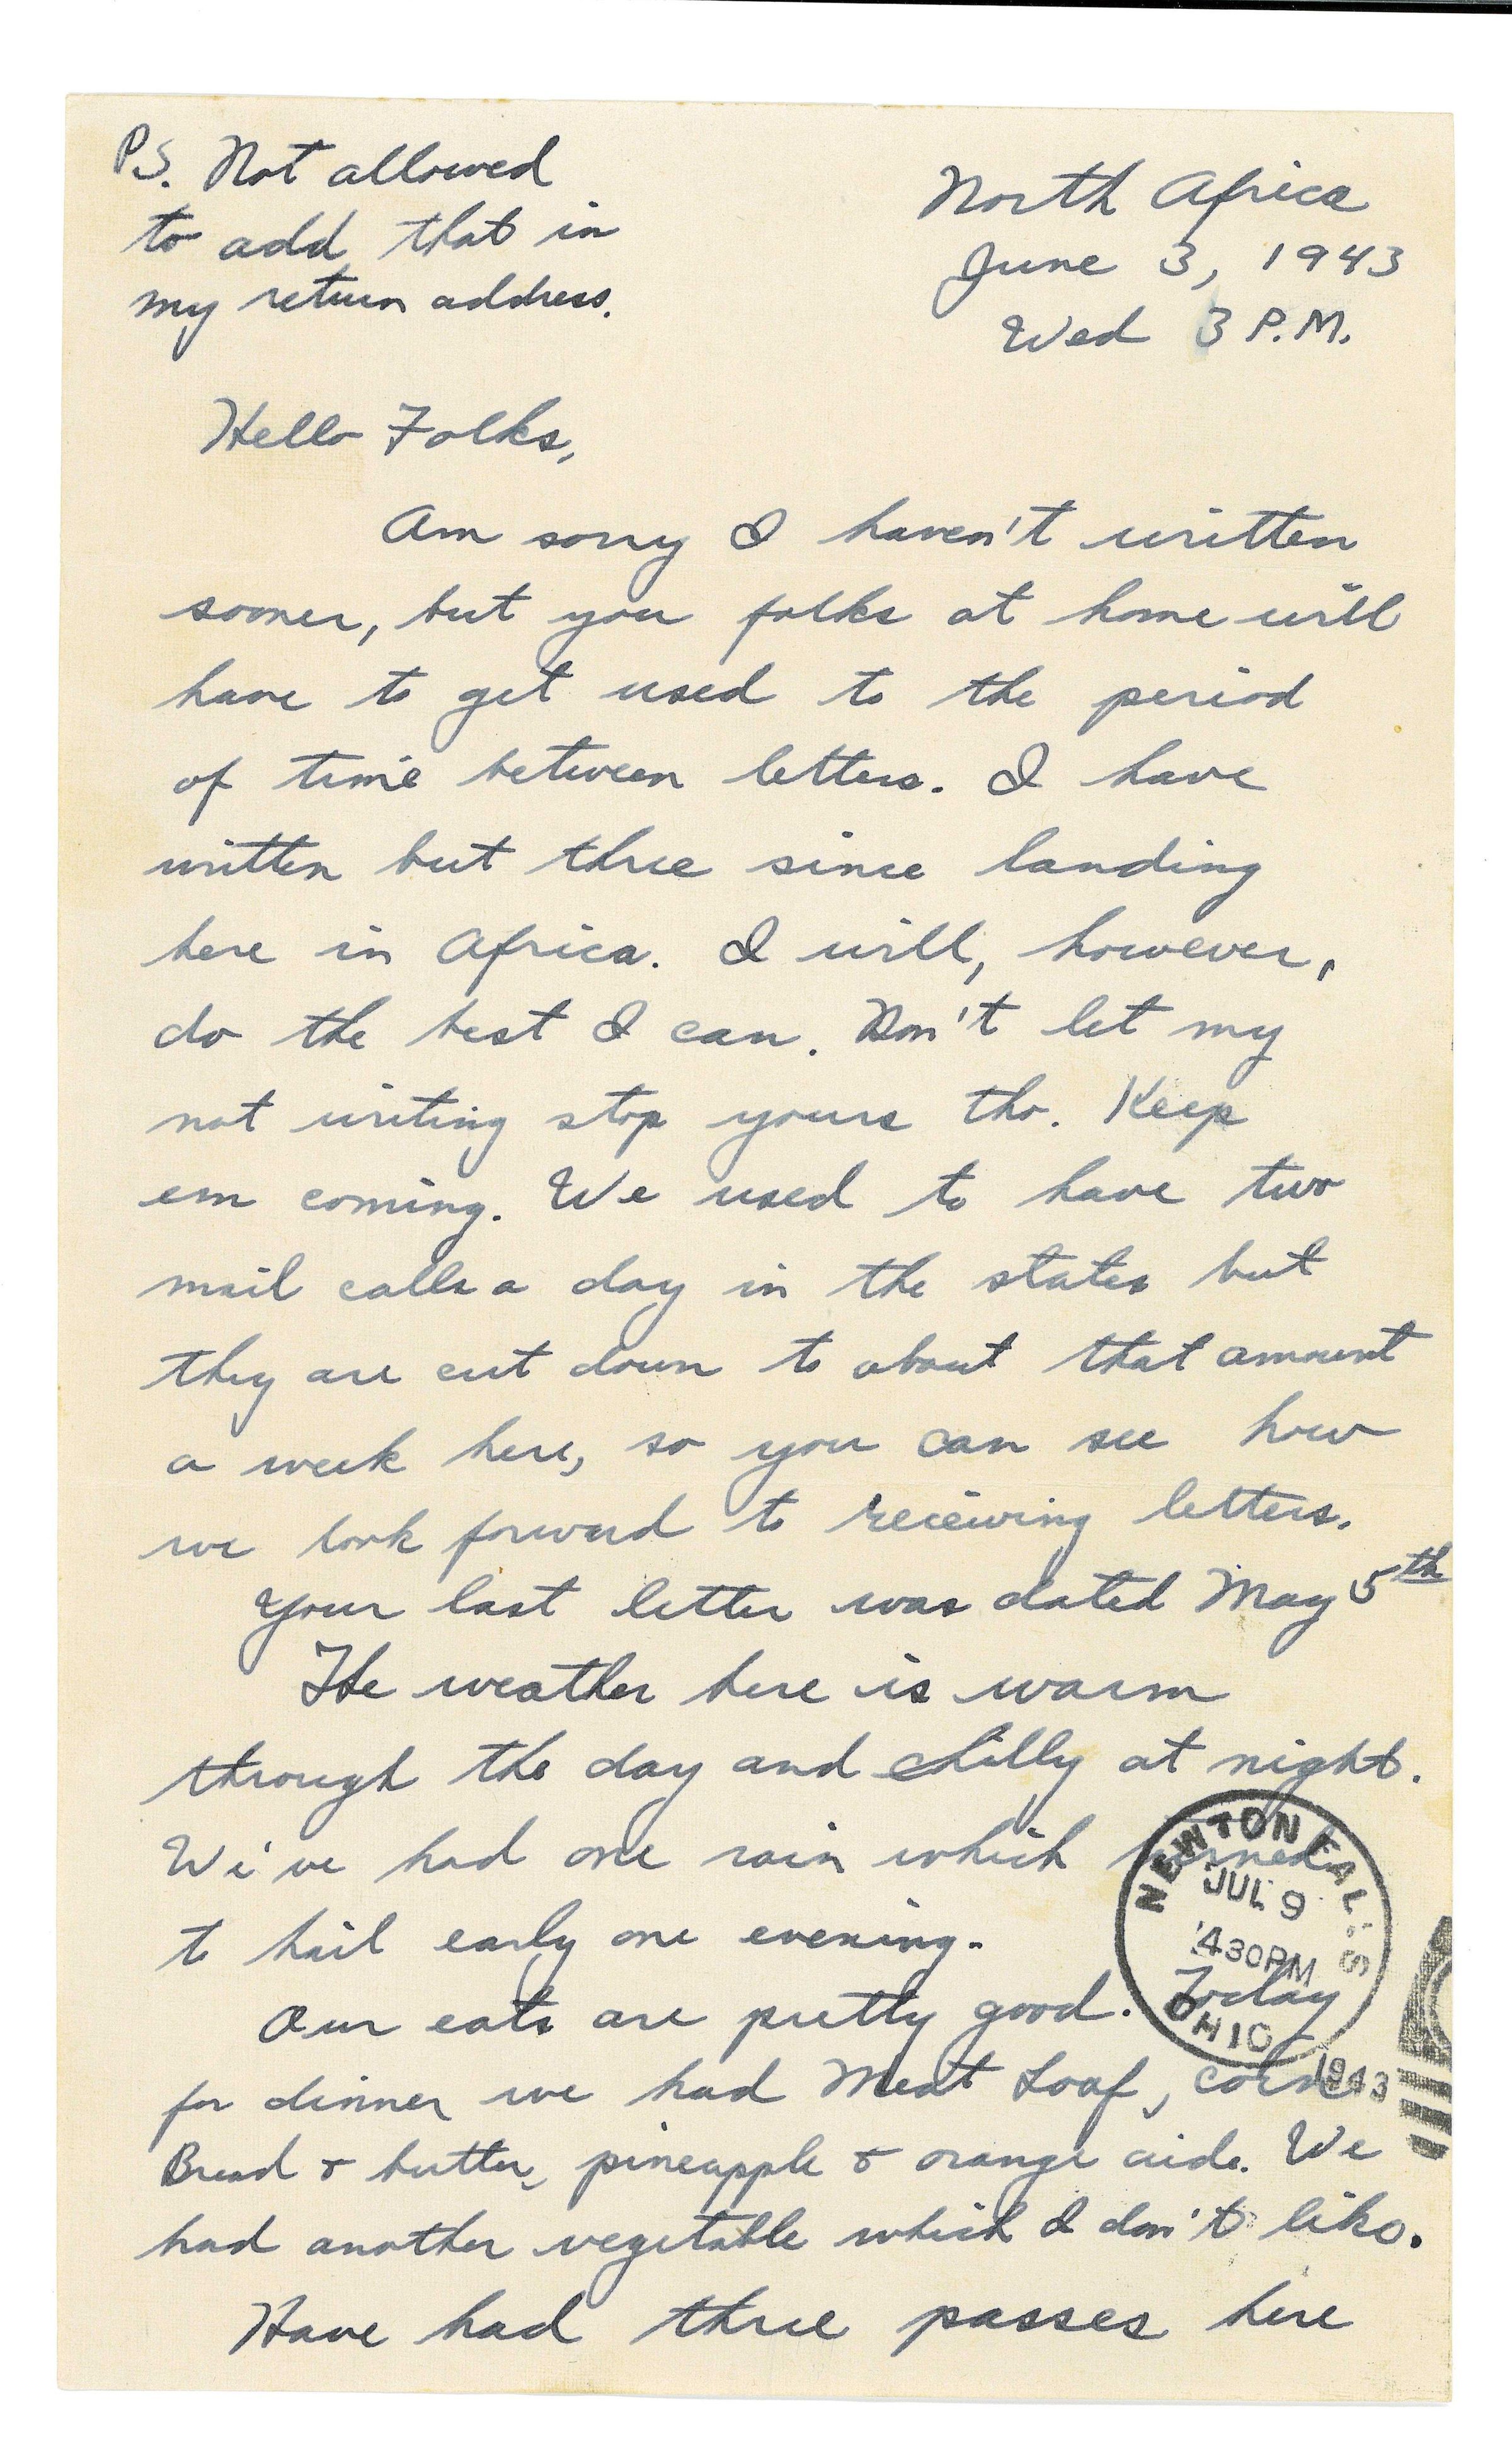 P.S. Not allowed
to add that in
my return address.
North Africa
June 3, 1943
Wed 3 P.M.
Hello Folks,
Am sorry I haven't written
sooner, but you folks at home will
have to get used to the period
of time between letters. I have
written but three since landing
here in Africa. I will, however,
do the best I can. Don't let my
not writing stop yours tho. Keep
em coming. We used to have two
mail calls a day in the states but
they are cut down to about that amount
a week here, so you can see how
we look forward to receiving letters.
Your last letter was dated May 5th
The weather here is warm
through the day and chilly at night.
We've had one rain which turned
to hail early one evening.
Our eats are pretty good. Today
for dinner we had Meat Loaf, corn
Bread & butter, pineapple & orange aide. We
had another vegetable which I don't like.
Have had three passes here
NEWTON FALLS
JUL 9
430PM
OHIO
1943